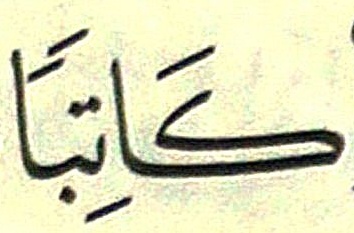 كَاتِبًا